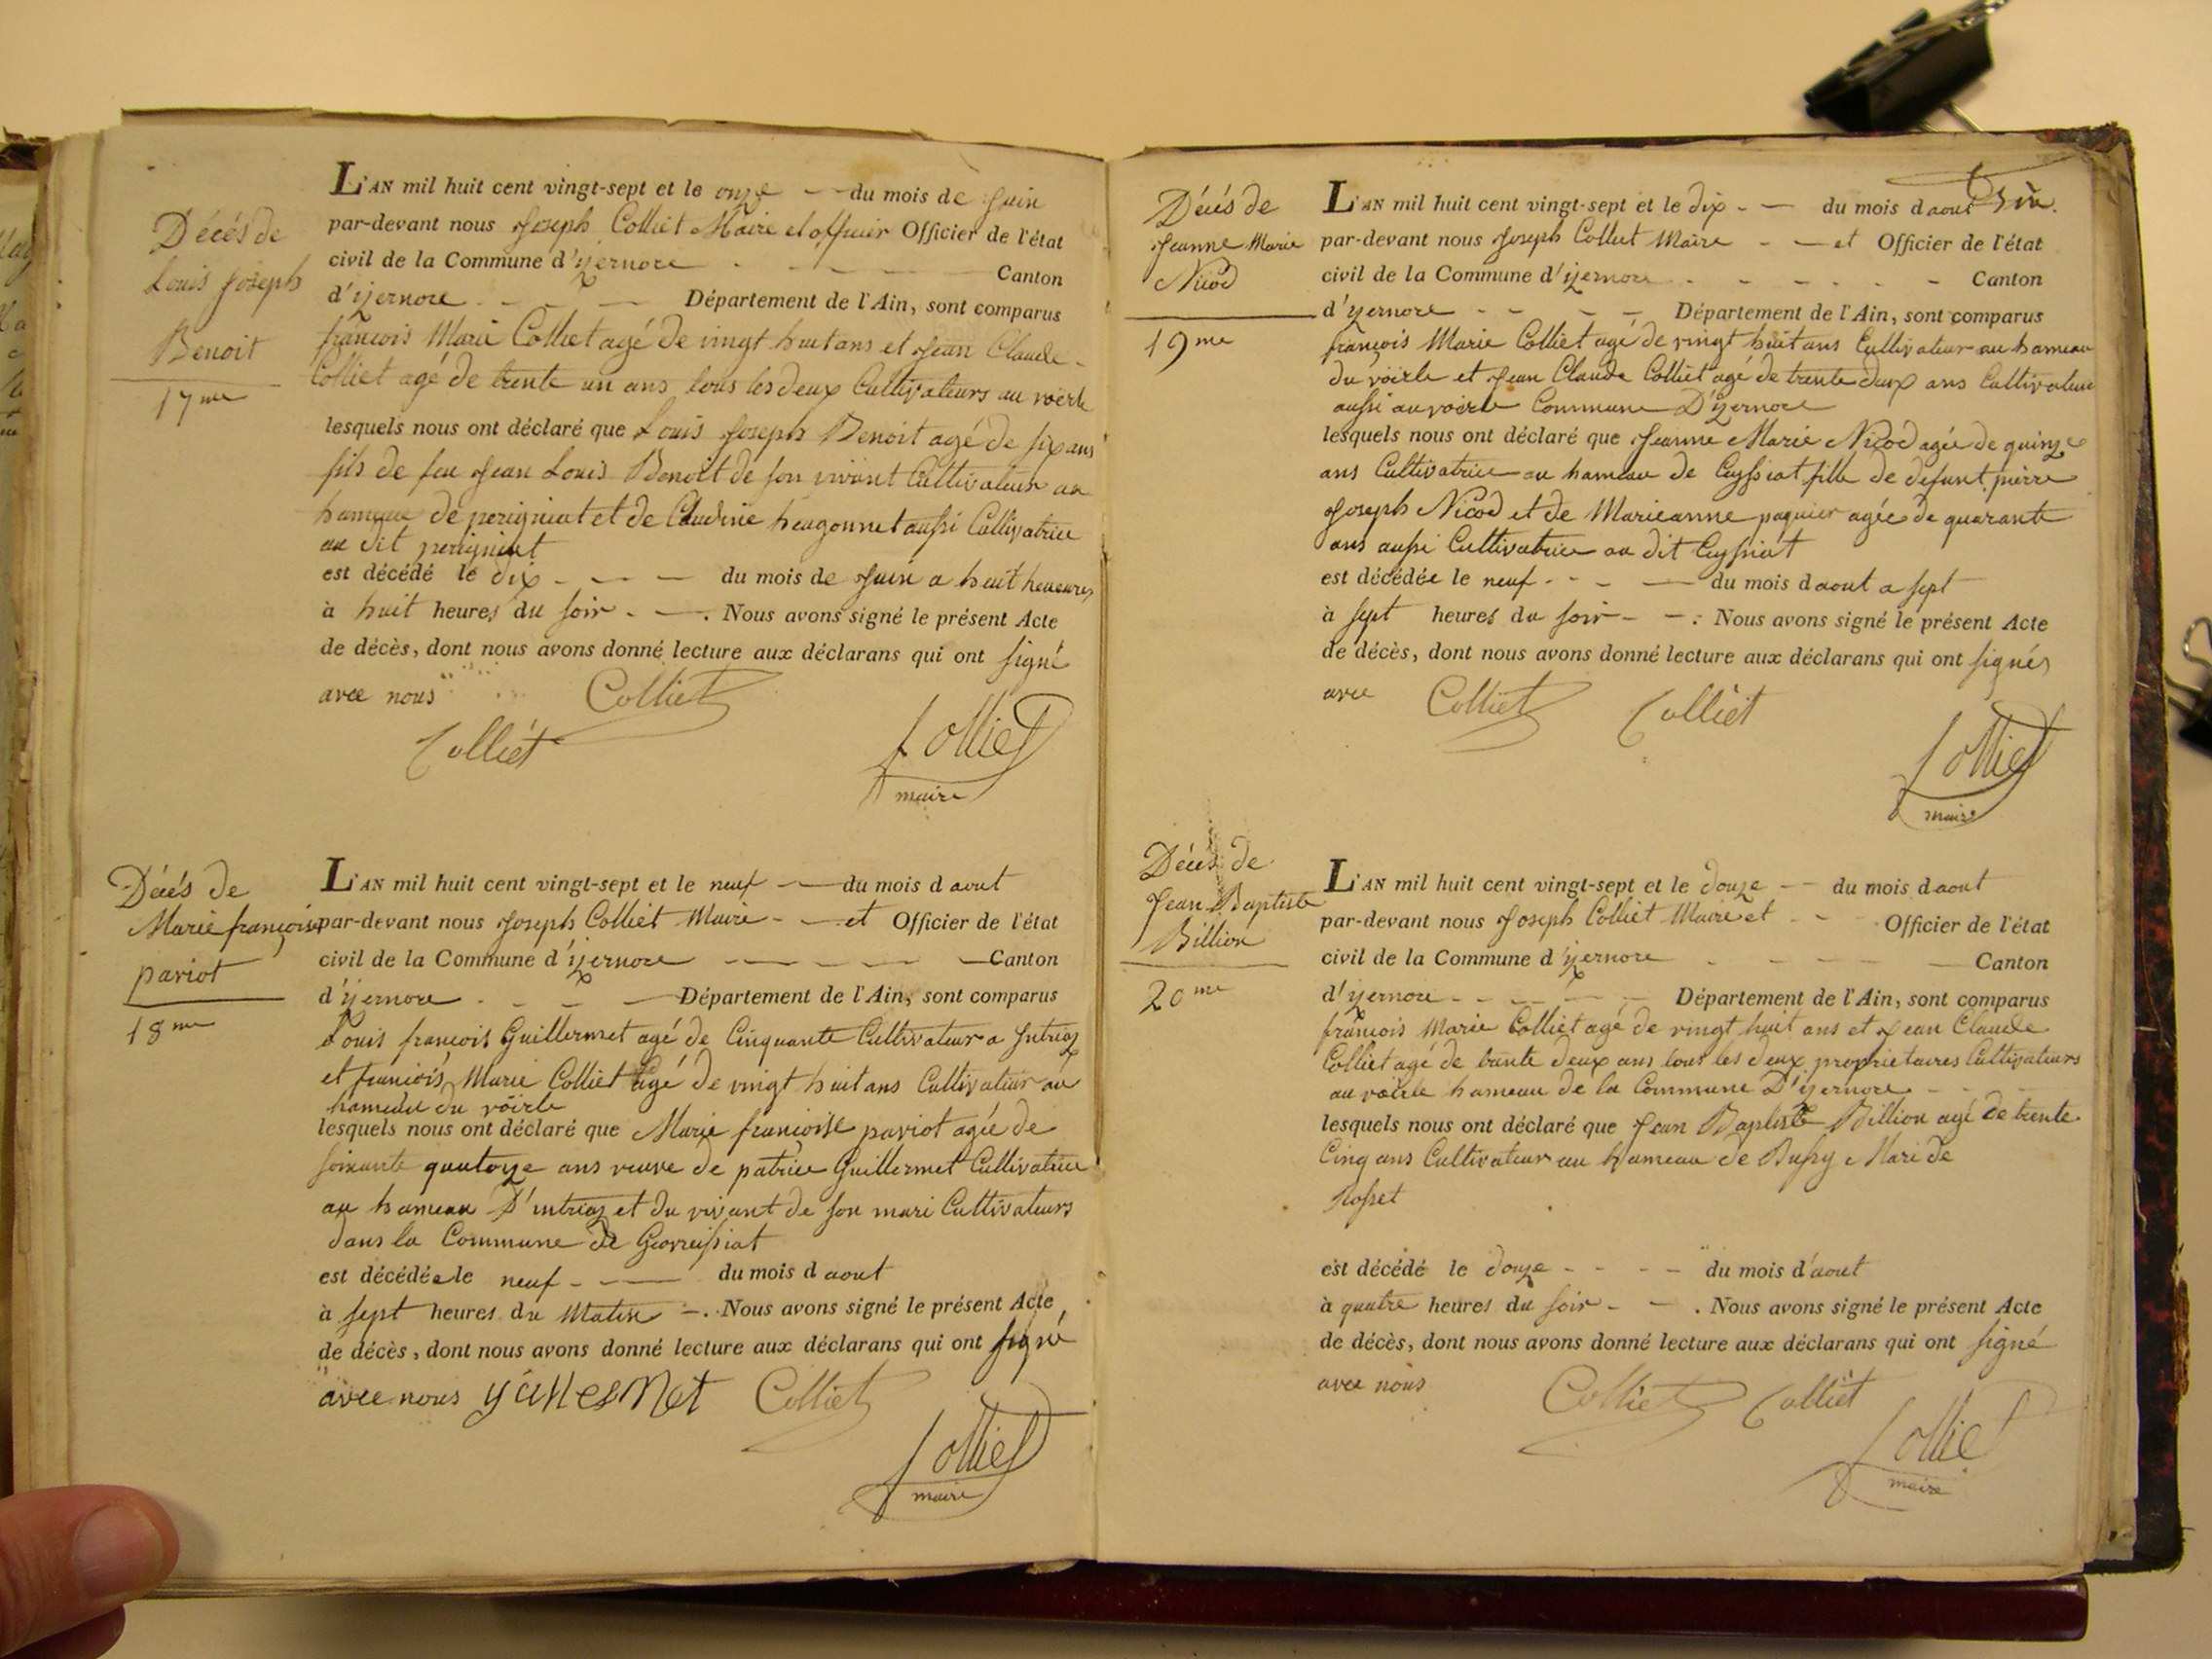 Décés de
Louis Joseph
Benoit
17me
L'AN mil huit cent vingt-sept et le onze du mois de Juin
par-devant nous Joseph Colliet Maire et officier Officier de l'état
civil de la Commune d'izernore Canton
d'izernore Département de l'Ain, sont comparus
françois Marie Colliet agé de vingt huit ans et Jean Claude
Colliet agé de trente un ans tous les deux Cultivateurs au voerle
lesquels nous ont déclaré que Louis Joseph Benoit agé de six ans
fils de feu Jean Louis Benoit de son vivant Cultivateur au
hameau de perigniat et de Claudine heugonnet aussi Cultivatrice
au dit perigniat
est décédé le dix du mois de Juin a huit heueures
à huit heures du soir . Nous avons signé le présent Acte
de décès, dont nous avons donné lecture aux déclarans qui ont signé
avec nous Colliet
Colliét
Colliet
maire
Décés de
Marie françoise
pariot
18me
L'AN mil huit cent vingt-sept et le neuf du mois d aout
par-devant nous Joseph Colliet Maire et Officier de l'état
civil de la Commune d'izernore Canton
d'izernore Département de l'Ain, sont comparus
Louis françois Guillermet agé de Cinquante Cultivateur a Intriaz
et francois Marie Colliet agé de vingt huit ans Cultivateur au
hameau du voirle
lesquels nous ont déclaré que Marie françoise pariot agée de
soixante quatorze ans veuve de patrice Guillermet Cultivatrice
au hameau D'intriaz et du vivant de son mari Cultivateurs
dans la Commune de Georreissiat
est décédée le neuf du mois d aout
à sept heures du Matin . Nous avons signé le présent Acte
de décès, dont nous avons donné lecture aux déclarans qui ont signé
avec nous Colliet
Colliet
maire
Décés de
Jeanne Marie
Nicod
19me
L'AN mil huit cent vingt-sept et le dix du mois d aout
par-devant nous Joseph Colliet Maire et Officier de l'état
civil de la Commune d'izernore Canton
d'izernore Département de l'Ain, sont comparus
françois Marie Colliet agé de vingt huit ans Cultivateur au hameau
du voirle et Jean Claude Colliet agé de trente deux ans Cultivateur
aussi au voirle Commune D'izernore
lesquels nous ont déclaré que Jeanne Marie Nicod agée de quinze
ans Cultivatrice au hameau de Ceyssiat fille de defunt pierre
Joseph Nicod et de Marieanne paquier agée de quarante
ans aussi Cultivatrice au dit Ceyssiat
est décédée le neuf du mois d aout a sept
à sept heures du soir . Nous avons signé le présent Acte
de décès, dont nous avons donné lecture aux déclarans qui ont signés
avec Colliet Colliét
Colliet
maire
Décés de
Jean Baptiste
Billion
20me
L'AN mil huit cent vingt-sept et le douze du mois d aout
par-devant nous Joseph Colliet Maire et Officier de l'état
civil de la Commune d'izernore Canton
d'izernore Département de l'Ain, sont comparus
françois Marie Colliet agé de vingt huit ans et Jean Claude
Colliet agé de trente deux ans tous les deux proprietaires Cultivateurs
au voirle hameau de la Commune D'izernore
lesquels nous ont déclaré que Jean Baptiste Billion agé de trente
Cinq ans Cultivateur au hameau de Bussy Mari de
rosset
est décédé le douze du mois d'aout
à quatre heures du soir . Nous avons signé le présent Acte
de décès, dont nous avons donné lecture aux déclarans qui ont signé
avec nous Colliet Colliét
Colliet
maire